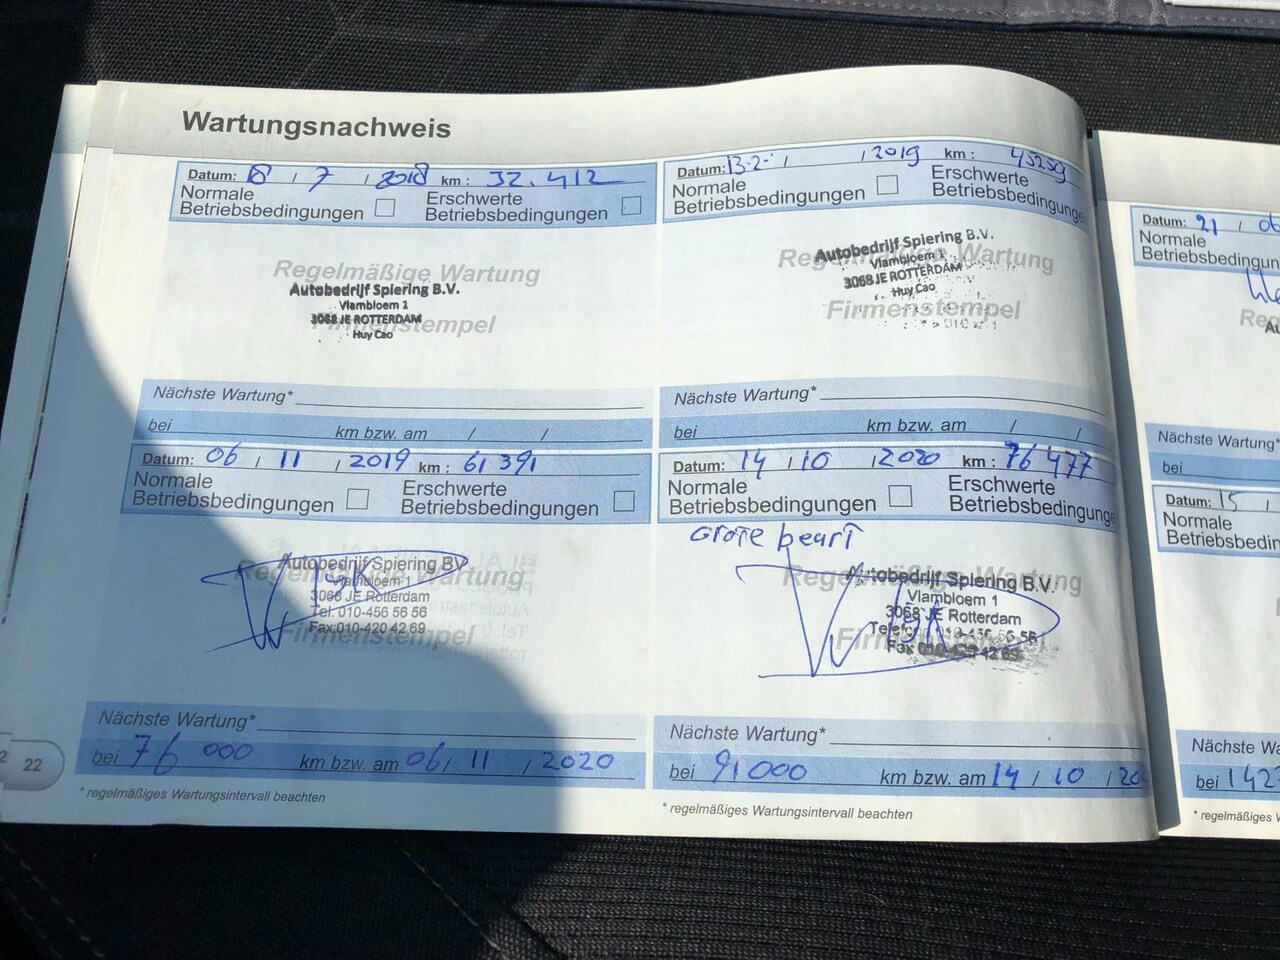 Wartungsnachweis
Datum: 8 / 7 / 2018 km: 32.412
Normale Betriebsbedingungen
Erschwerte Betriebsbedingungen
Regelmäßige Wartung
Autobedrijf Spiering B.V.
Vlambloem 1
3068 JE ROTTERDAM
Firmenstempel
Huy Cao
Nächste Wartung*
bei km bzw. am / /
Datum: 13-2- / / 2019 km: 45259
Normale Betriebsbedingungen
Erschwerte Betriebsbedingunge
Regelmäßige Wartung
Autobedrijf Spiering B.V.
Vlambloem 1
3068 JE ROTTERDAM
Huy Cao
Firmenstempel
Nächste Wartung*
bei km bzw. am / /
Datum: 06 / 11 / 2019 km: 61391
Normale Betriebsbedingungen
Erschwerte Betriebsbedingungen
Regelmäßige Wartung
Autobedrijf Spiering BV
Vlambloem 1
3068 JE Rotterdam
Tel: 010-456 56 56
Fax:010-420 42 69
Firmenstempel
Nächste Wartung*
bei 76 000 km bzw. am 06/ 11 / 2020
* regelmäßiges Wartungsintervall beachten
Datum: 14 / 10 / 2020 km: 76 477
Normale Betriebsbedingungen
Erschwerte Betriebsbedingunge
Grote beurt
Regelmäßige Wartung
Autobedrijf Spiering B.V.
Vlambloem 1
3068 JE Rotterdam
010-456 56 56
Fax 010-420 42 69
Firmenstempel
Nächste Wartung*
bei 91000 km bzw. am 14 / 10 / 20
* regelmäßiges Wartungsintervall beachten
22
Datum: 21 / 06
Normale
Betriebsbedingun
Nächste Wartung*
bei
Datum: 15 /
Normale
Betriebsbedin
Nächste Wa
bei 142
* regelmäßiges